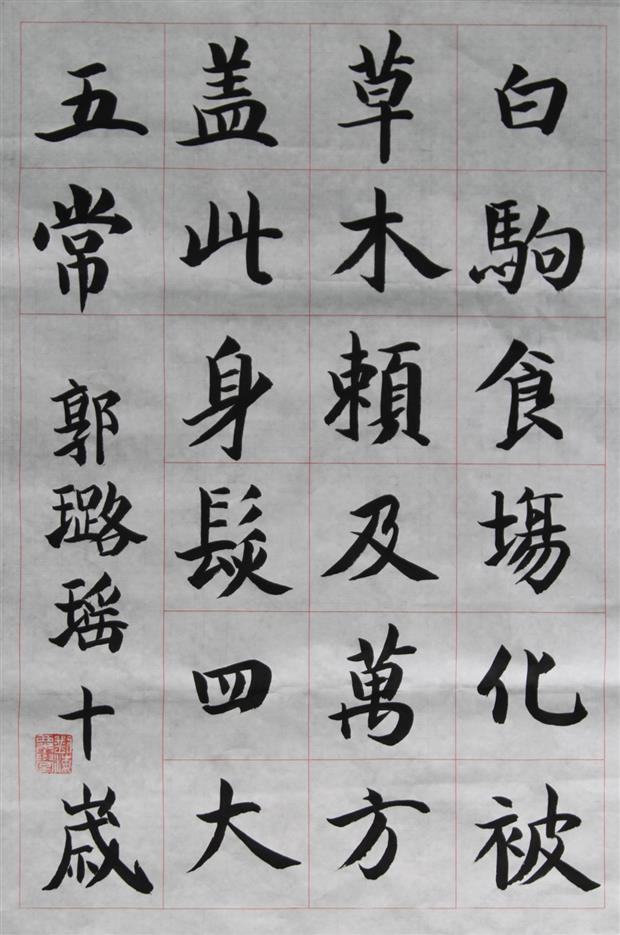 白駒食場化被
草木賴及萬方
盖此身髮四大
五常
郭璐瑶十歲